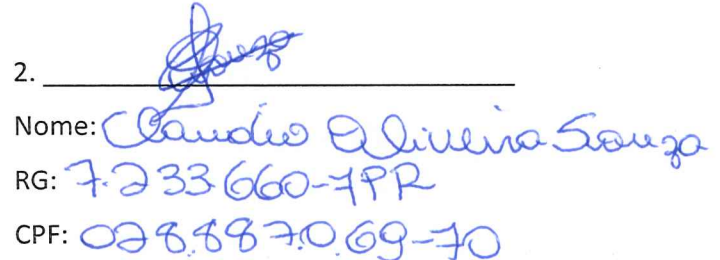 2. Souza
Nome: Claudio Oliveira Souza
RG: 7.233660-7PR
CPF: 028.887.069-70